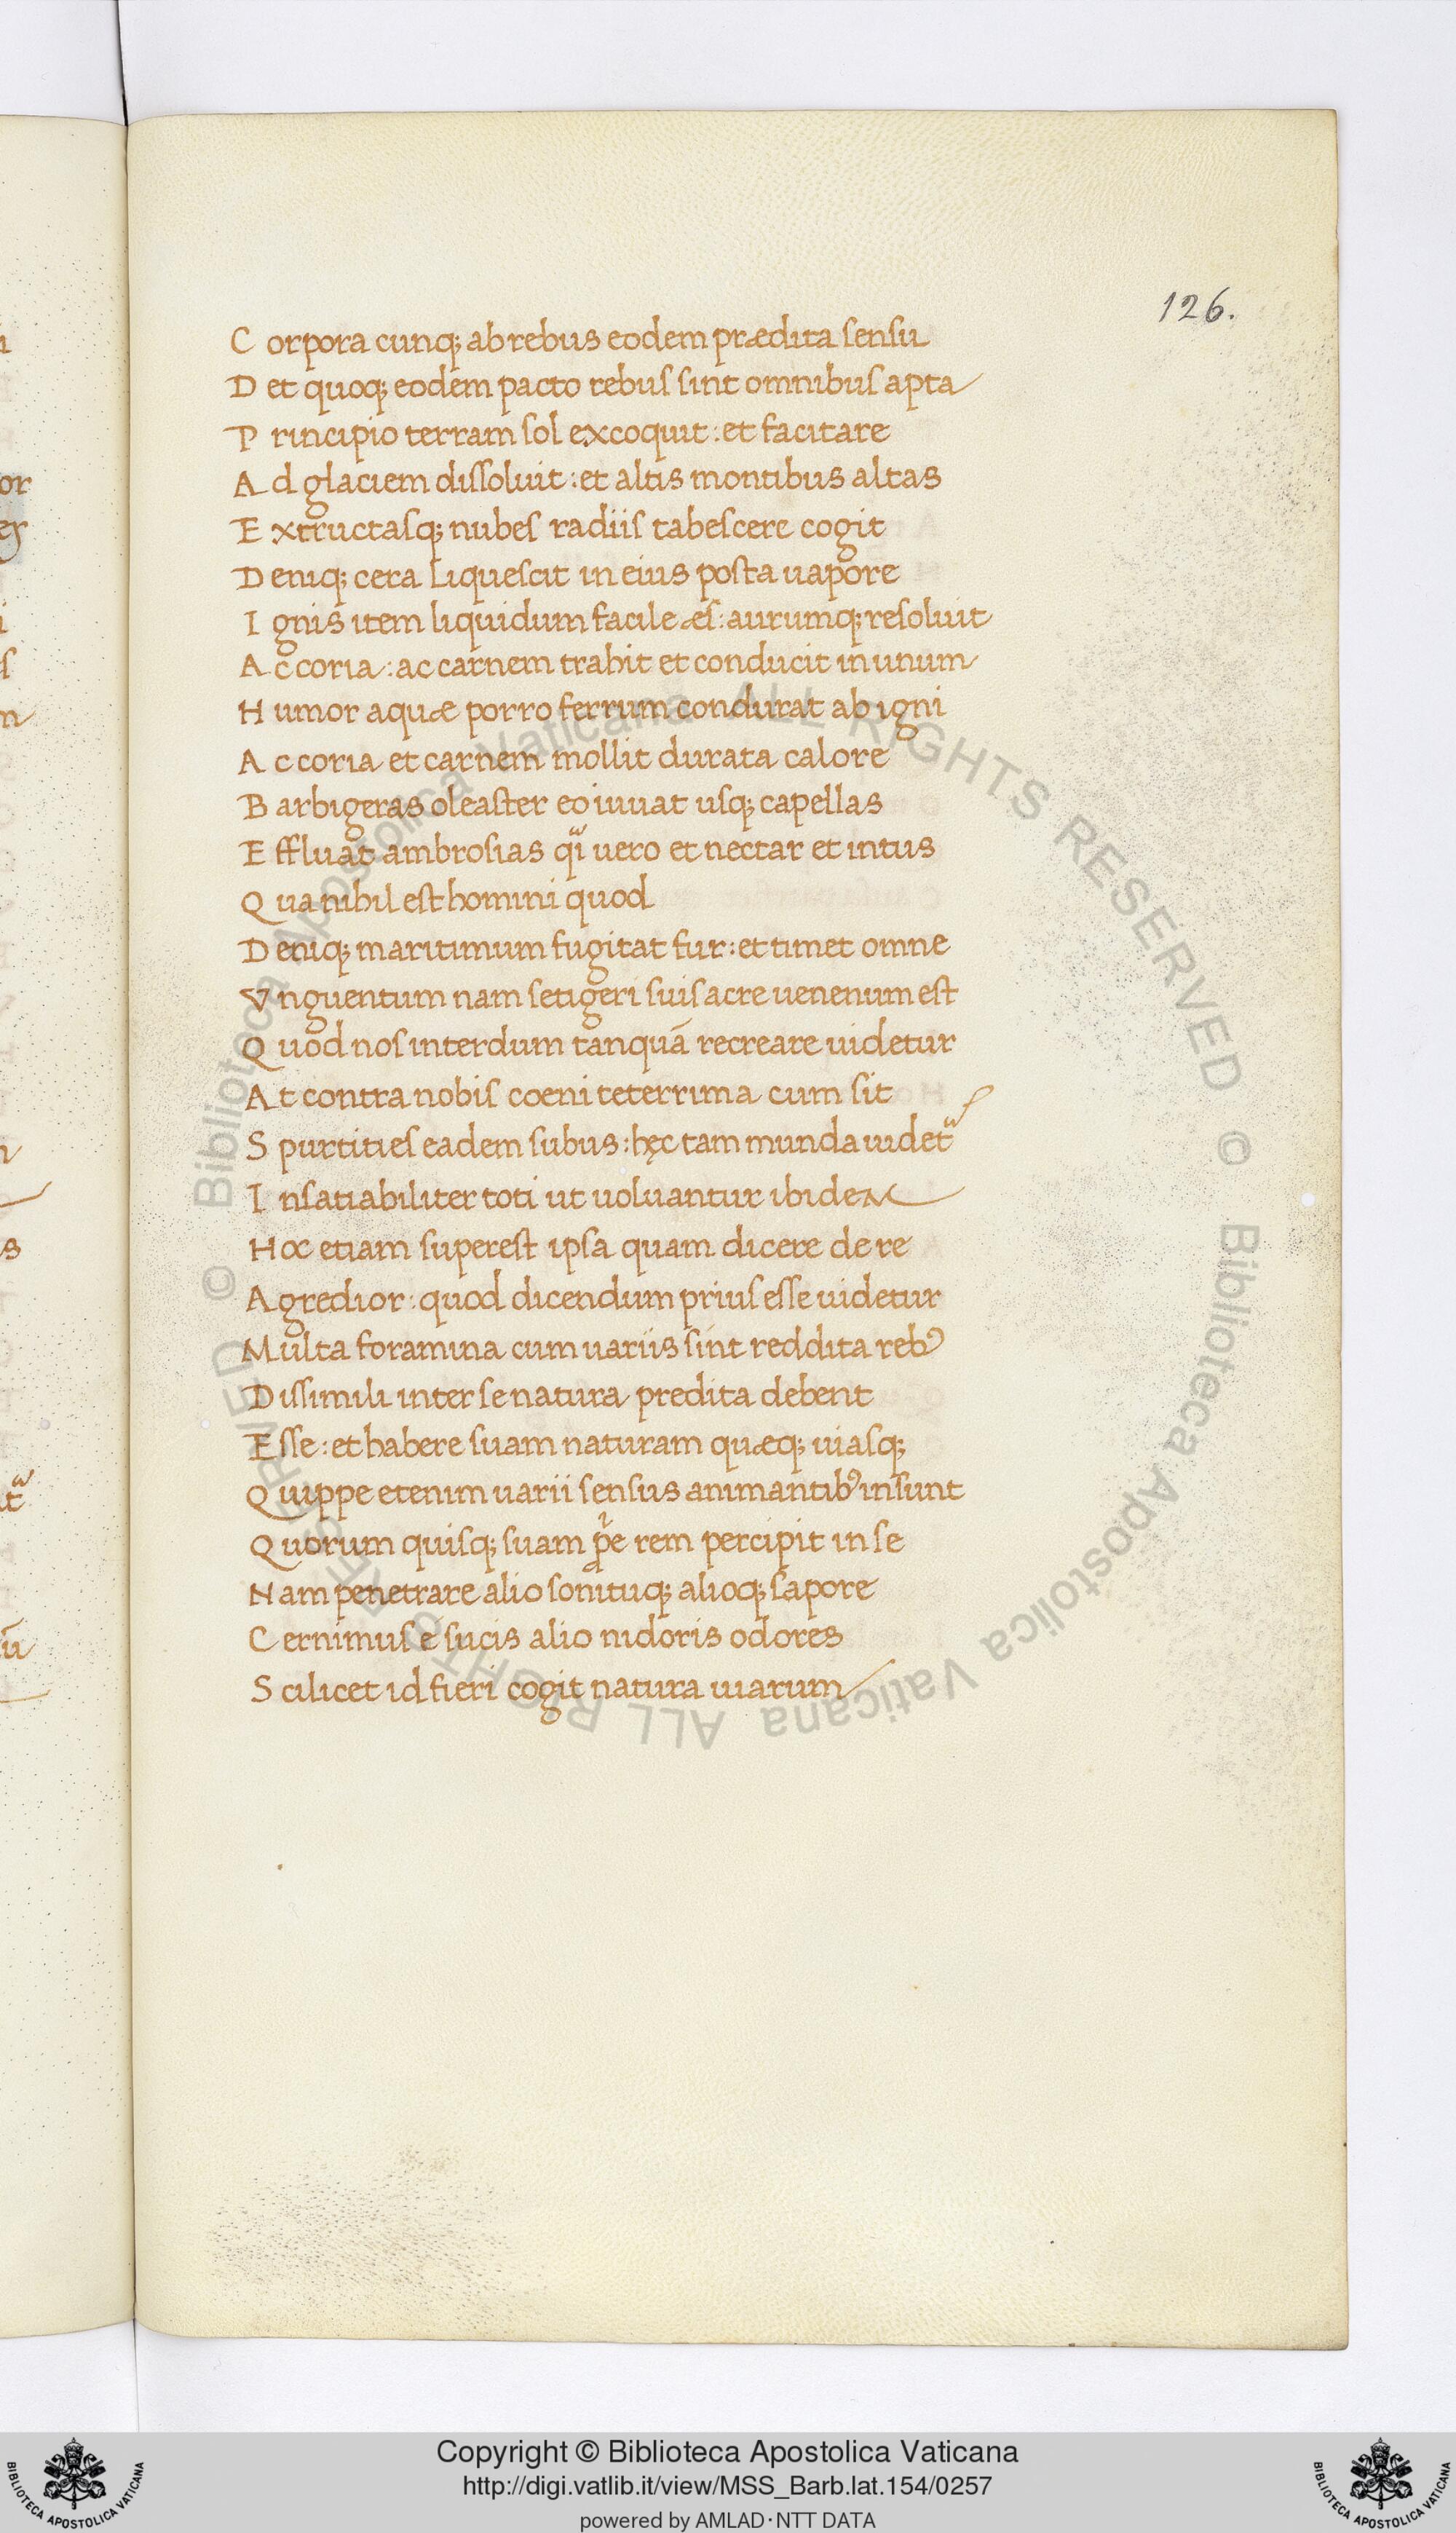 126.
C orpora cunq; ab rebus eodem prædita sensu
D et quoq; eodem pacto rebus sint omnibus apta
P rincipio terram sol excoquit : et facit are
A d glaciem dissoluit : et altis montibus altas
E xtructasq; nubes radiis tabescere cogit
D eniq; cera liquescit in eius posta uapore
I gnis item liquidum facile æs : aurumq; resoluit
A c coria : ac carnem trahit et conducit in unum
H umor aquæ porro ferrum condurat ab igni
A c coria et carnem mollit durata calore
B arbigeras oleaster eo iuuat usq; capellas
E ffluat ambrosias qi uero et nectar et intus
Q ua nihil est homini quod
D eniq; maritimum fugitat fur : et timet omne
V nguentum nam setigeri suis acre uenenum est
Q uod nos interdum tanquā recreare uidetur
A t contra nobis coeni teterrima cum sit
S purtities eadem subus : hęc tam munda uidet
I nsatiabiliter toti ut uoluantur ibidem
H oc etiam superest ipsa quam dicere de re
A gredior : quod dicendum prius esse uidetur
M ulta foramina cum uariis sint reddita rebꝰ
D issimili inter se natura predita debent
E sse : et habere suam naturam quæq; uiasq;
Q uippe etenim uarii sensus animantibꝰ insunt
Q uorum quisq; suam pe rem percipit in se
N am penetrare alio sonituq; alioq; sapore
C ernimus é sucis alio nidoris odores
S cilicet id fieri cogit natura uiarum
© Biblioteca Apostolica Vaticana ALL RIGHTS RESERVED
© Biblioteca Apostolica Vaticana ALL RIGHTS RESERVED
Copyright © Biblioteca Apostolica Vaticana
http://digi.vatlib.it/view/MSS_Barb.lat.154/0257
powered by AMLAD·NTT DATA
BIBLIOTECA APOSTOLICA VATICANA
BIBLIOTECA APOSTOLICA VATICANA